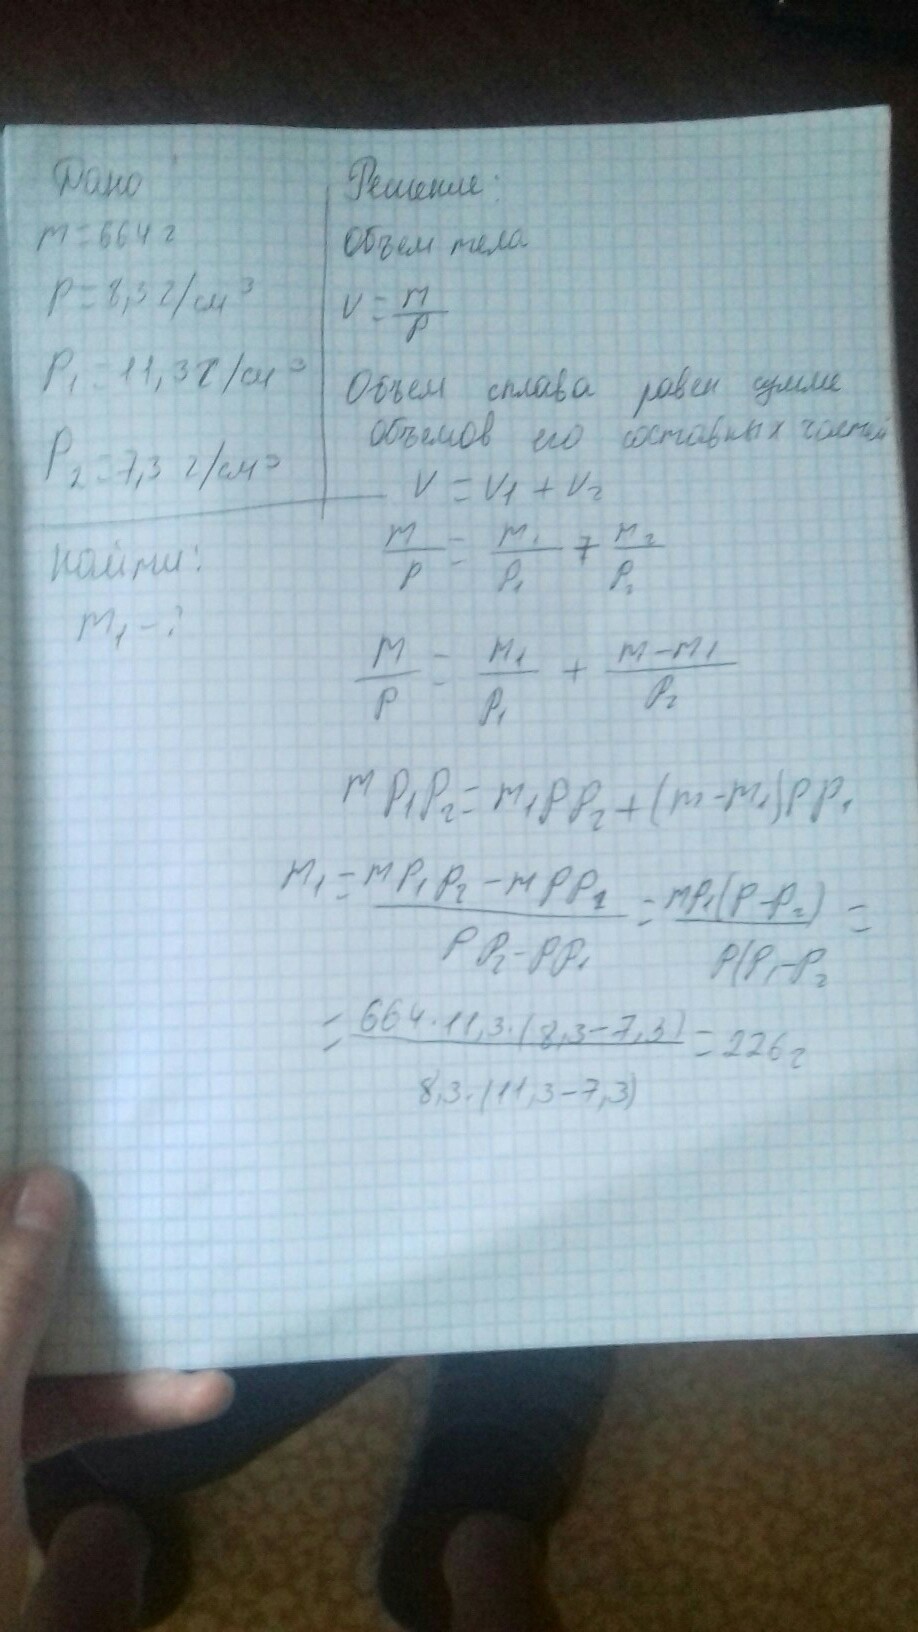 Дано
m=664 г
ρ=8,3 г/см³
ρ₁=11,3 г/см³
ρ₂=7,3 г/см³
Найти:
m₁-?
Решение:
Объем тела
V = m/ρ
Объем сплава равен сумме
объемов его составных частей
V = V₁ + V₂
m/ρ = m₁/ρ₁ + m₂/ρ₂
m/ρ = m₁/ρ₁ + (m-m₁)/ρ₂
mρ₁ρ₂=m₁ρρ₂+(m-m₁)ρρ₁
m₁ = (mρ₁ρ₂ - mρρ₁)/(ρρ₂-ρρ₁) = mρ₁(ρ-ρ₂)/ρ(ρ₁-ρ₂ =
= 664·11,3·(8,3-7,3)/8,3·(11,3-7,3) = 226 г